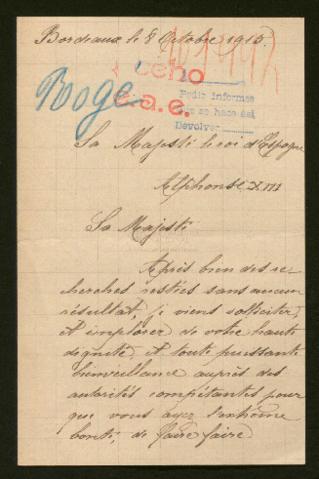 Bordeaux le 8 Octobre 1915.
Rogé
a.e.
Pedir informes
que se hace así
Devolver
Sa Majesti le roi d'Espagne
Alphonse XIII
Sa Majesti
Après bien des re
cherches restées sans aucun
résultat, je viens solliciter,
et implorer de votre haute
dignité, et toute puissante
bienveillance auprès des
autorités compétantes pour
que vous ayez l'extrême
bonté, de faire faire